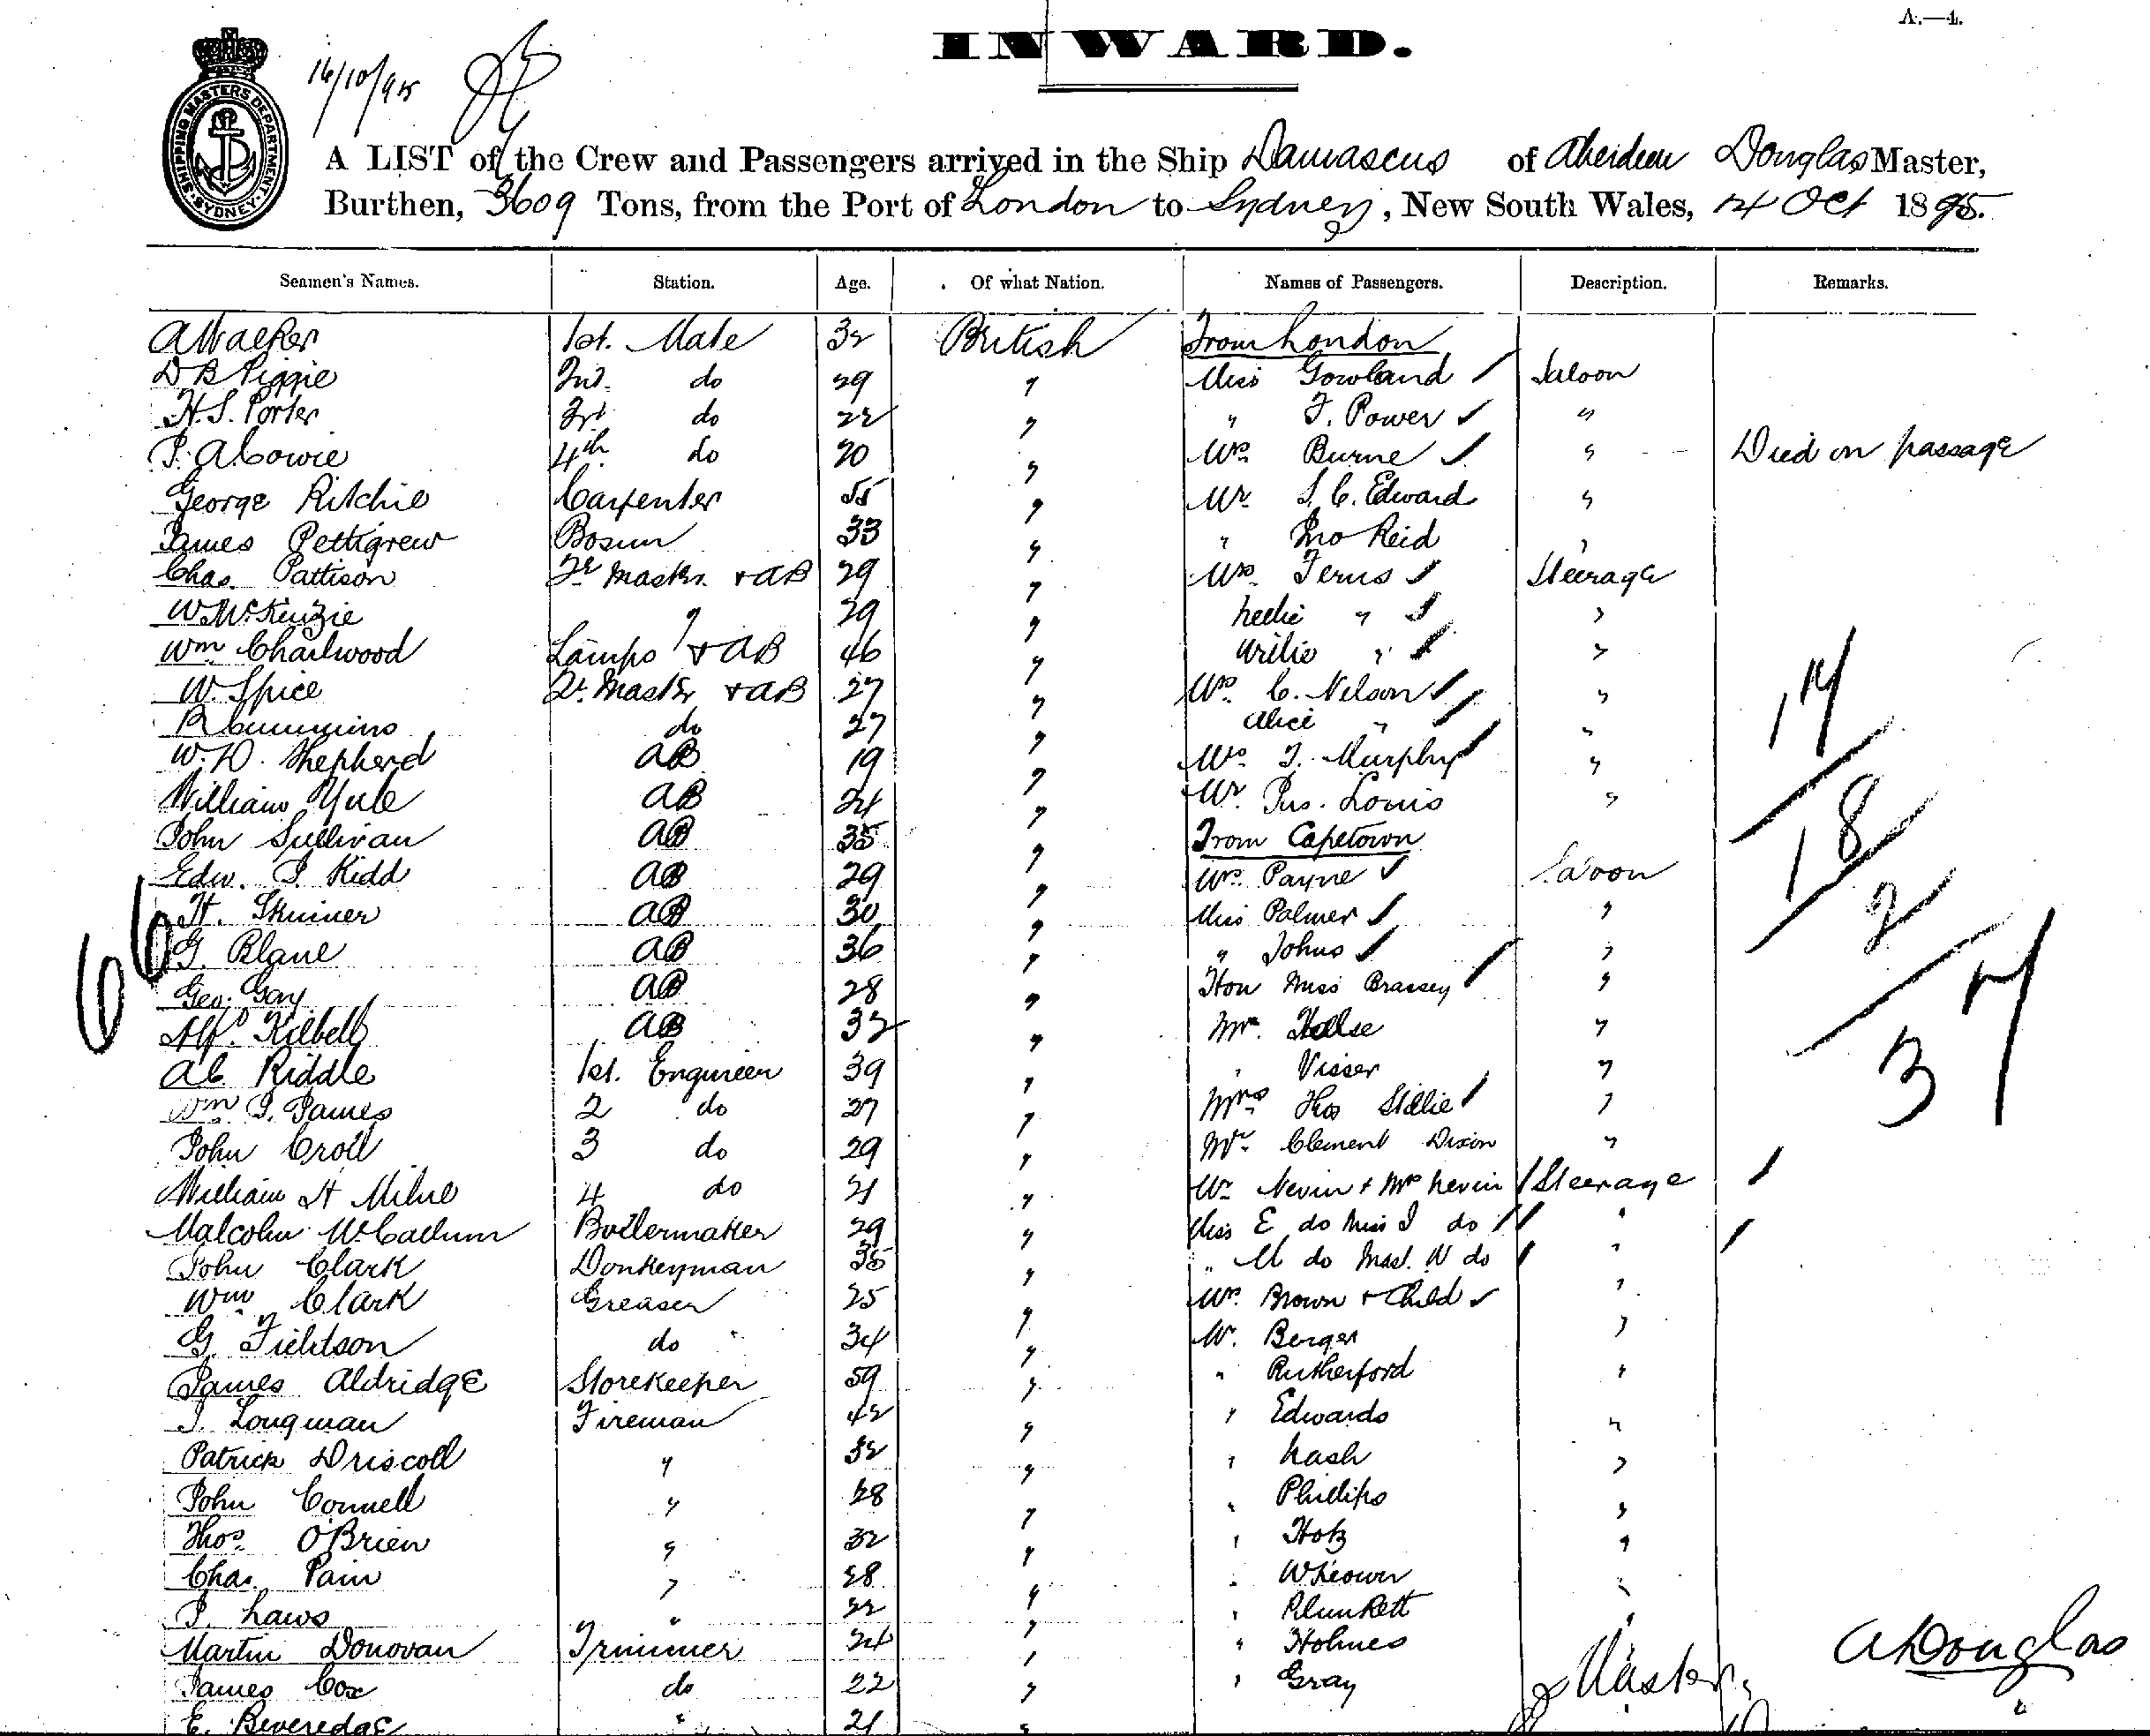 A.—4.
INWARD.
14/10/95
SHIPPING MASTERS DEPARTMENT SYDNEY
A LIST of the Crew and Passengers arrived in the Ship Damascus of Aberdeen Douglas Master,
Burthen, 3609 Tons, from the Port of London to Sydney, New South Wales, 14 Oct 1895.
Seamen's Names. Station. Age. Of what Nation. Names of Passengers. Description. Remarks.
A Walker 1st. Mate 32 British From London
D B Piggie 2nd. do 29 " Miss Gowland Saloon
H. S. Porter 3rd do 22 " " F. Power "
J. A. Cowie 4th do 20 " Mrs Burne " Died on passage
George Ritchie Carpenter 55 " Mr S. C. Edward "
James Pettigrew Bosun 33 " " Jno Reid "
Chas. Pattison Qr Mastr. + AB 29 " Mrs Ferns Steerage
W. McKenzie " 29 " Nellie " "
Wm Charlwood Lamps + AB 46 " Willie " "
W. Spice Qr. Mastr + AB 27 " Mrs C. Nelson "
R Cummins do 27 " Alice " "
W. D. Shepherd AB 19 " Mrs J. Murphy "
William Yule AB 24 " Mr. Louis "
John Sullivan AB 35 " From Capetown
Edw. J. Kidd AB 29 " Mrs. Payne Saloon
H. Skinner AB 30 " Miss Palmer "
G. Blane AB 36 " " Johns "
Geo. Gay AB 28 " Hon Miss Brassey "
Alfd. Kilbell AB 32 " Mr. "
A C Riddle 1st. Engineer 39 " " Visser "
Wm J. James 2 do 27 " Mrs Thos Stillie "
John Croll 3 do 29 " Mr. Clement Dixon "
William H Milne 4 do 21 " Mr Nevin + Mrs Nevin Steerage
Malcolm McCallum Boilermaker 29 " Miss E do Miss I do "
John Clark Donkeyman 35 " " M do Mast. N do "
Wm Clark Greaser 25 " Mrs. Brown + Child "
G. Fieldson do 34 " Mr. Berger "
James Aldridge Storekeeper 59 " " Rutherford "
J. Longman Fireman 42 " " Edwards "
Patrick Driscoll " 32 " " Nash "
John Connell " 28 " " Phillips "
Thos. O'Brien " 32 " " Hotz "
Chas. Pain " 28 " " "
J. Laws " 22 " " Plunkett "
Martin Donovan Trimmer 24 " " Holmes "
James Cox do 22 " " Gray
E. Beveredge " 21 "
66
14
18
2
37
A Douglas
Master